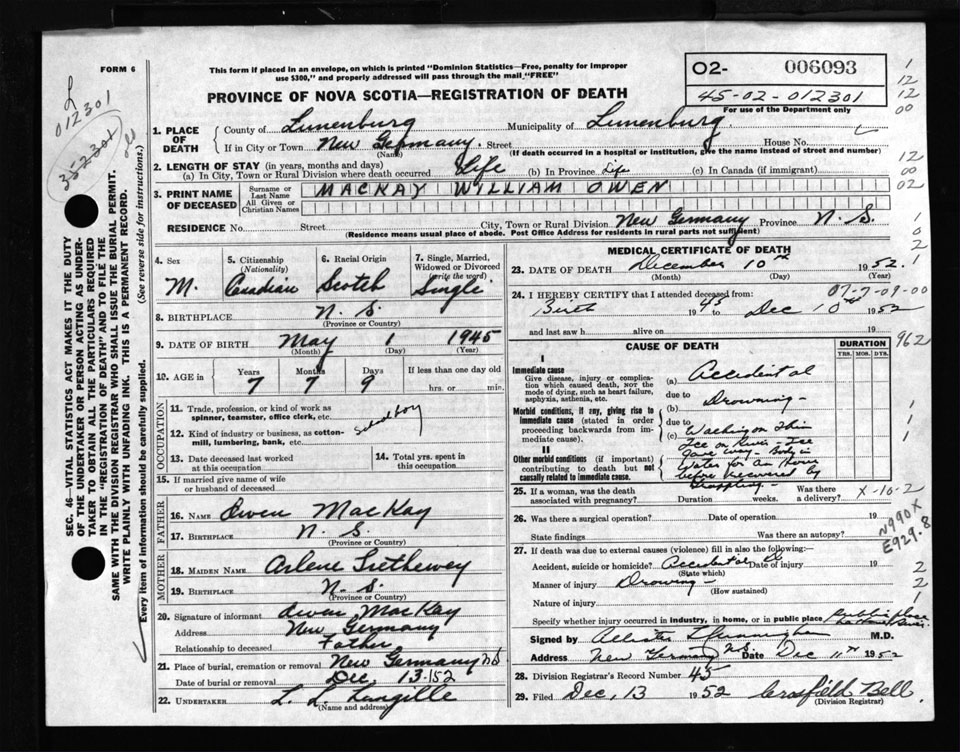 FORM 6
This form if placed in an envelope, on which is printed "Dominion Statistics—Free, penalty for improper
use $300," and properly addressed will pass through the mail "FREE"
PROVINCE OF NOVA SCOTIA—REGISTRATION OF DEATH
O2- 006093
45-02-012301
For use of the Department only
1
12
12
00
L
012301
35-2301
SEC. 46—VITAL STATISTICS ACT MAKES IT THE DUTY
OF THE UNDERTAKER OR PERSON ACTING AS UNDER-
TAKER TO OBTAIN ALL THE PARTICULARS REQUIRED
IN THE "REGISTRATION OF DEATH" AND TO FILE THE
SAME WITH THE DIVISION REGISTRAR WHO SHALL ISSUE THE BURIAL PERMIT.
WRITE PLAINLY WITH UNFADING INK. THIS IS A PERMANENT RECORD.
Every item of information should be carefully supplied. (See reverse side for instructions.)
1. PLACE OF DEATH
County of Lunenburg Municipality of Lunenburg
If in City or Town New Germany, Street House No.
(Name) (If death occurred in a hospital or institution, give the name instead of street and number)
2. LENGTH OF STAY (in years, months and days)
(a) In City, Town or Rural Division where death occurred Life (b) In Province Life (c) In Canada (if immigrant)
12
00
02
3. PRINT NAME OF DECEASED
Surname or Last Name MACKAY WILLIAM OWEN
All Given or Christian Names
RESIDENCE No. Street City, Town or Rural Division New Germany Province N.S.
(Residence means usual place of abode. Post Office Address for residents in rural parts not sufficient)
4. Sex
M.
5. Citizenship (Nationality)
Canadian
6. Racial Origin
Scotch
7. Single, Married, Widowed or Divorced (write the word)
Single
8. BIRTHPLACE N.S.
(Province or Country)
9. DATE OF BIRTH May 1 1945
(Month) (Day) (Year)
10. AGE in Years Months Days If less than one day old
7 7 9 hrs. or min.
OCCUPATION
11. Trade, profession, or kind of work as
spinner, teamster, office clerk, etc.
School boy
12. Kind of industry or business, as cotton-
mill, lumbering, bank, etc.
13. Date deceased last worked
at this occupation
14. Total yrs. spent in
this occupation
15. If married give name of wife
or husband of deceased
FATHER
16. NAME Owen MacKay
17. BIRTHPLACE N.S.
(Province or Country)
MOTHER
18. MAIDEN NAME Arlene Trethewey
19. BIRTHPLACE N.S.
(Province or Country)
20. Signature of informant Owen MacKay
Address New Germany
Relationship to deceased Father
21. Place of burial, cremation or removal New Germany NS
Date of burial or removal Dec. 13-152
22. UNDERTAKER L. L. Langille
(Name and address)
MEDICAL CERTIFICATE OF DEATH
23. DATE OF DEATH December 10th 1952
(Month) (Day) (Year)
1
0
2
1
07-7-09-00
24. I HEREBY CERTIFY that I attended deceased from:
Birth 1945 to Dec 10th 1952
and last saw h alive on 19
962
CAUSE OF DEATH
DURATION
YRS. MOS. DYS.
I
Immediate cause
Give disease, injury or complica-
tion which caused death, NOT the
mode of dying, such as heart failure,
asphyxia, asthenia, etc.
(a) Accidental
due to Drowning-
Morbid conditions, if any, giving rise to
immediate cause (stated in order
proceeding backwards from im-
mediate cause).
(b)
due to Walking on Thin
(c) Ice on River - Ice
Gave Way - Body in
Water for an Hour
before recovered by
Grappling-
1
1
1
II
Other morbid conditions (if important)
contributing to death but not
causally related to immediate cause.
25. If a woman, was the death
associated with pregnancy? Duration weeks. Was there a delivery?
X-10-2
26. Was there a surgical operation? Date of operation 19
State findings Was there an autopsy?
N990X
E929.8
27. If death was due to external causes (violence) fill in also the following:—
Accident, suicide or homicide? Accidental Date of injury 19
(State which)
Manner of injury Drowing-
(How sustained)
Nature of injury
2
2
1
Specify whether injury occurred in industry, in home, or in public place Public place
Signed by M.D.
Address New Germany N.S. Date Dec 11th 1952
28. Division Registrar's Record Number 45
29. Filed Dec, 13 1952 Bell
(Division Registrar)